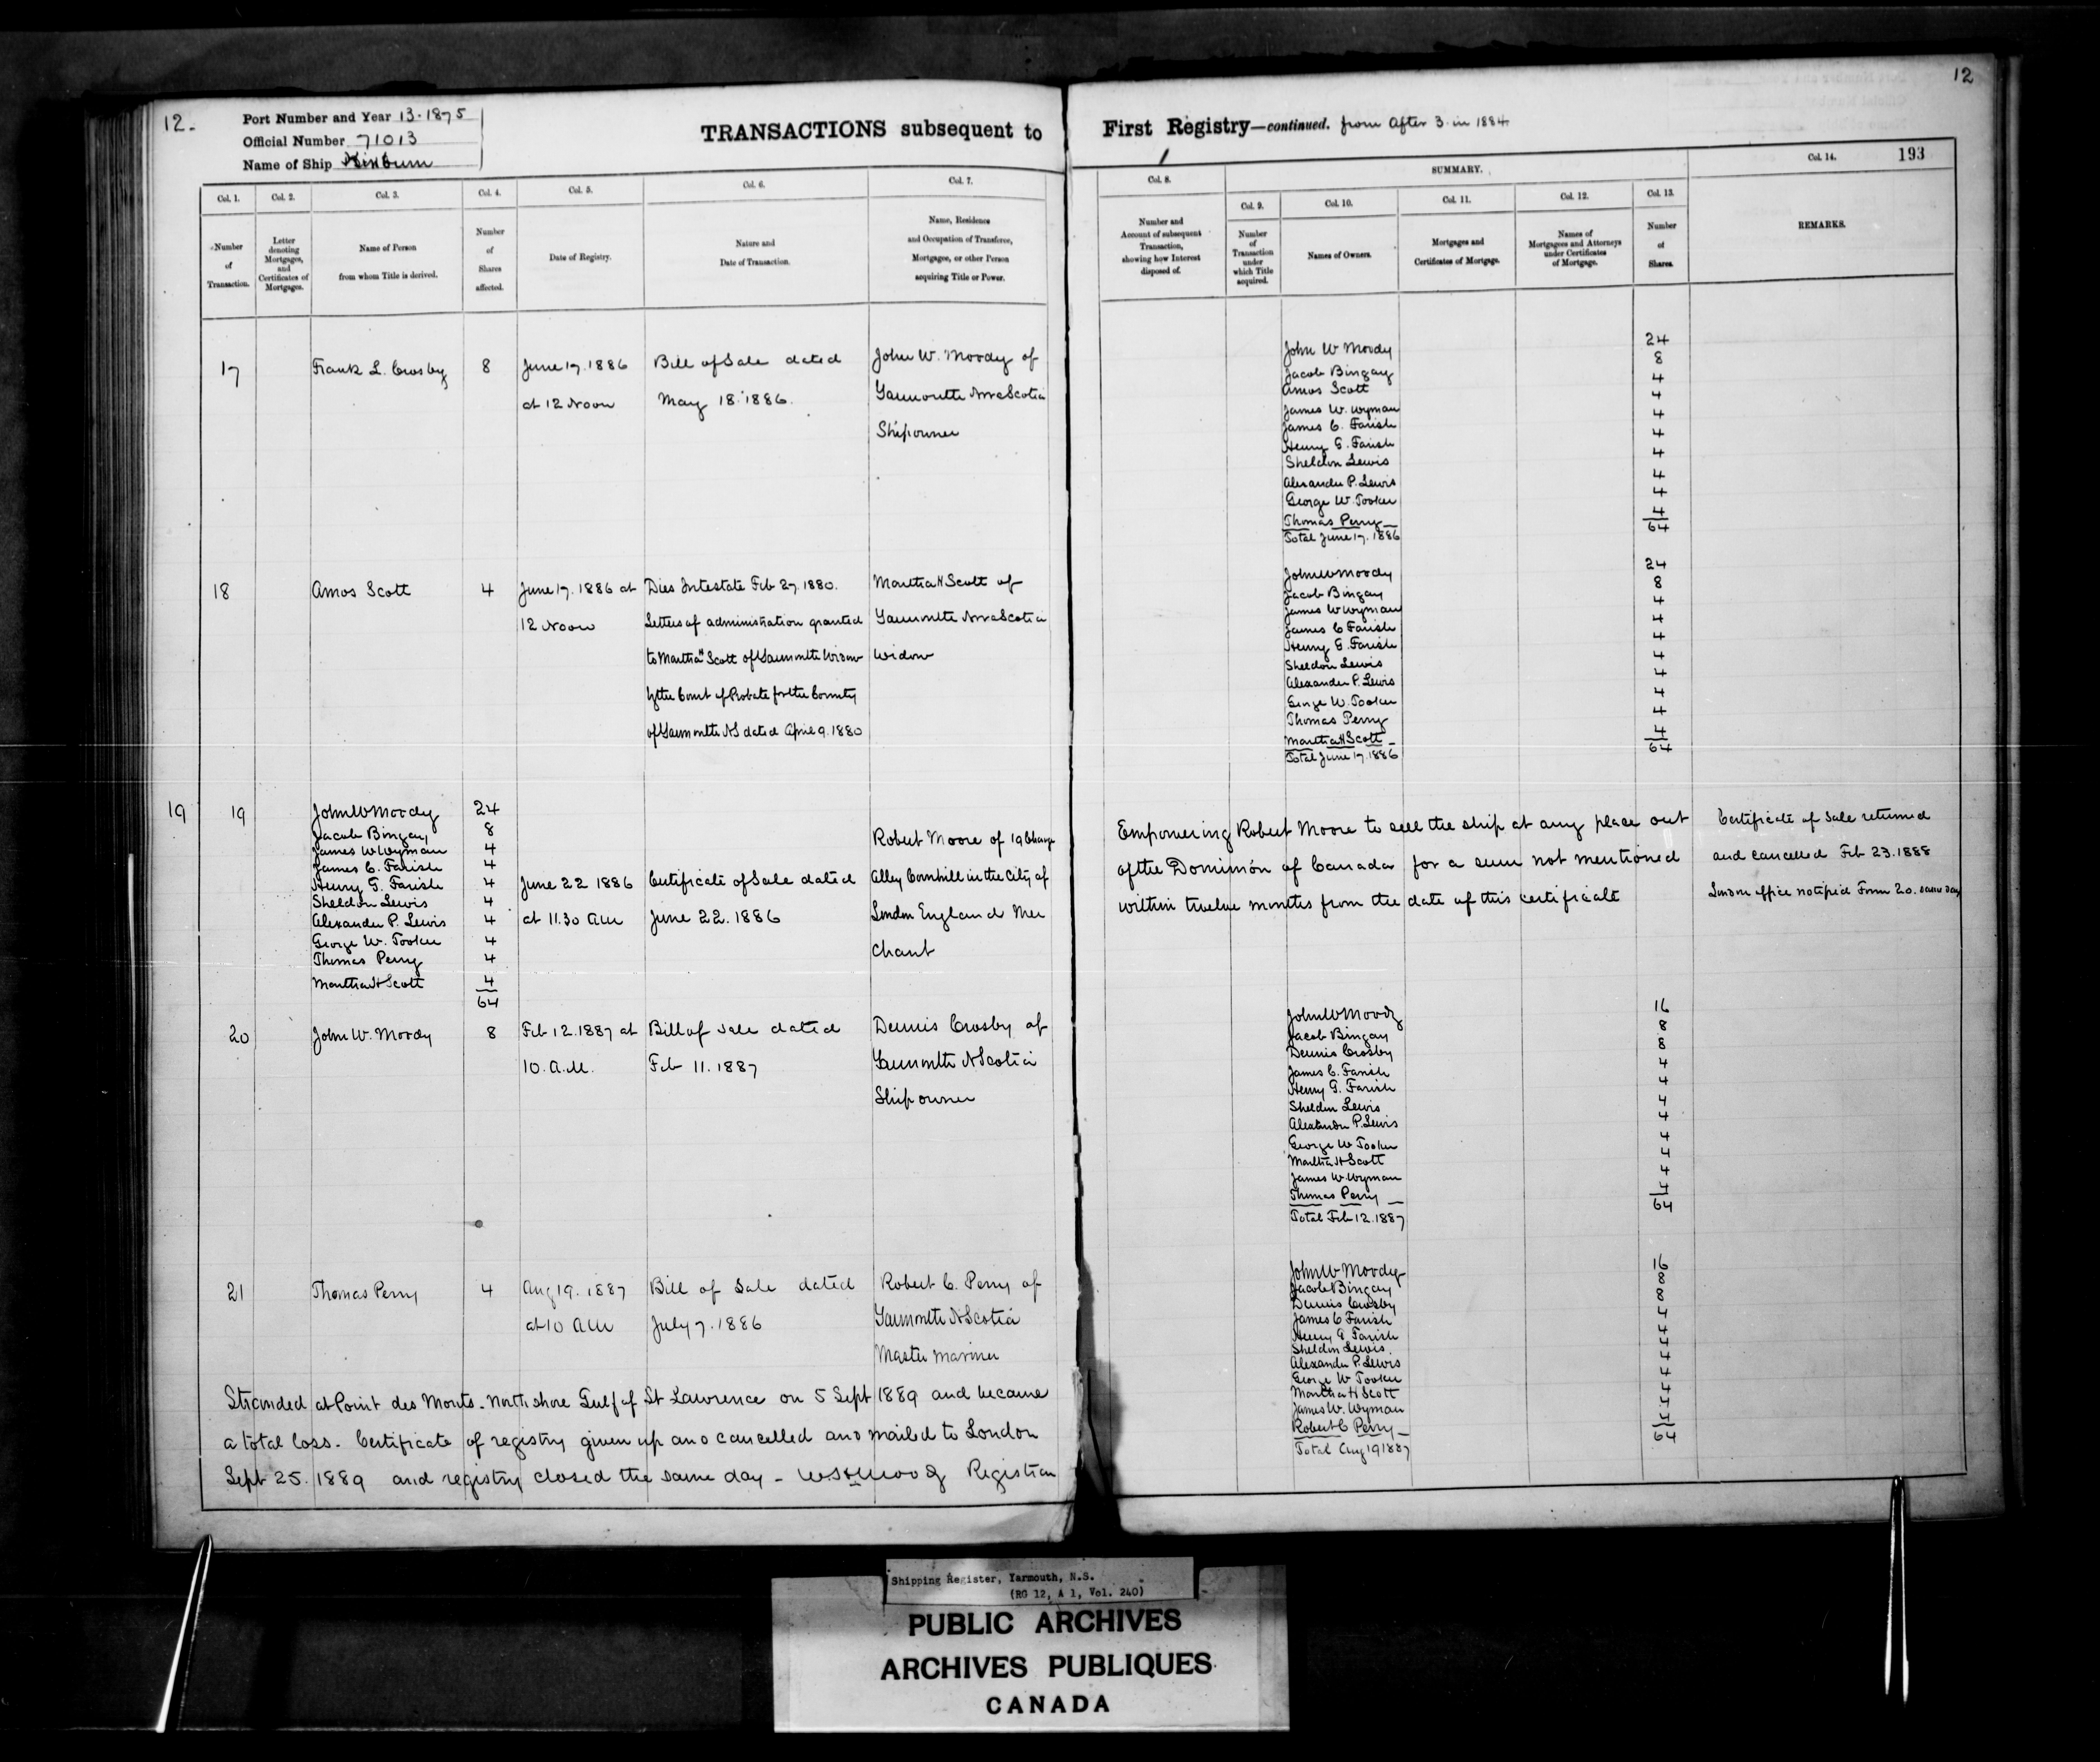 12.
Port Number and Year 13.1875
Official Number 71013
Name of Ship Kinburn
TRANSACTIONS subsequent to
Col. 1. Col. 2. Col. 3. Col. 4. Col. 5. Col. 6. Col. 7.
Number of Transaction.
Letter denoting Mortgages, and Certificates of Mortgages.
Name of Person from whom Title is derived.
Number of Shares affected.
Date of Registry.
Nature and Date of Transaction.
Name, Residence and Occupation of Transferee, Mortgagee, or other Person acquiring Title or Power.
17 Frank L. Crosby 8 June 17. 1886 Bill of Sale dated John W. Moody of
at 12 Noon May 18. 1886. Yarmouth Nova Scotia
Shipowner
18 Amos Scott 4 June 17. 1886 at Dies Intestate Feb 27. 1880. Martha H Scott of
12 Noon Letters of administration granted Yarmouth Nova Scotia
to Martha H Scott of Yarmouth Widow Widow
by the Court of Probate for the County
of Yarmouth NS dated April 9. 1880
19 19 John W Moody 24
Jacob Bingay 8
James W Wyman 4
James C. Farish 4
Henry G. Farish 4
Sheldon Lewis 4
Alexander P. Lewis 4
George W. Tooker 4
Thomas Perry 4
Martha H Scott 4
64
June 22 1886 Certificate of Sale dated
at 11.30 AM June 22. 1886
Robert Moore of 19 Change
Alley Cornhill in the City of
London England Mer
chant
20 John W. Moody 8 Feb 12. 1887 at Bill of Sale dated Dennis Crosby of
10. A.M. Feb 11. 1887 Yarmouth N Scotia
Ship owner
21 Thomas Perry 4 Aug 19. 1887 Bill of Sale dated Robert C. Perry of
at 10 AM July 7. 1886 Yarmouth N Scotia
Master Mariner
Stranded at Point des Monts - North shore Gulf of St Lawrence on 5 Sept 1889 and became
a total loss. Certificate of registry given up and cancelled and mailed to London
Sept 25. 1889 and registry closed the same day - Registrar
12
First Registry—continued. from After 3. in 1884
193
Col. 8. SUMMARY. Col. 14.
Col. 9. Col. 10. Col. 11. Col. 12. Col. 13.
Number and Account of subsequent Transaction, showing how Interest disposed of.
Number of Transaction under which Title acquired.
Names of Owners.
Mortgages and Certificates of Mortgage.
Names of Mortgagees and Attorneys under Certificates of Mortgage.
Number of Shares.
REMARKS.
John W Moody 24
Jacob Bingay 8
Amos Scott 4
James W. Wyman 4
James C. Farish 4
Henry G. Farish 4
Sheldon Lewis 4
Alexander P. Lewis 4
George W. Tooker 4
Thomas Perry 4
Total June 17. 1886 64
John W Moody 24
Jacob Bingay 8
James W Wyman 4
James C Farish 4
Henry G. Farish 4
Sheldon Lewis 4
Alexander P. Lewis 4
George W. Tooker 4
Thomas Perry 4
Martha H Scott 4
Total June 17. 1886 64
Empowering Robert Moore to sell the ship at any place out
of the Dominion of Canada for a sum not mentioned
within twelve months from the date of this certificate
Certificate of Sale returned
and cancelled Feb 23. 1888
London office notified Form 20. same day
John W Moody 16
Jacob Bingay 8
Dennis Crosby 8
James C. Farish 4
Henry G. Farish 4
Sheldon Lewis 4
Alexander P. Lewis 4
George W Tooker 4
Martha H Scott 4
James W. Wyman 4
Thomas Perry 4
Total Feb 12. 1887 64
John W Moody 16
Jacob Bingay 8
Dennis Crosby 8
James C Farish 4
Henry G Farish 4
Sheldon Lewis. 4
Alexander P. Lewis 4
George W Tooker 4
Martha H Scott 4
James W. Wyman 4
Robert C Perry 4
Total Aug 19 1887 64
Shipping Register, Yarmouth, N.S.
(RG 12, A 1, Vol. 240)
PUBLIC ARCHIVES
ARCHIVES PUBLIQUES
CANADA